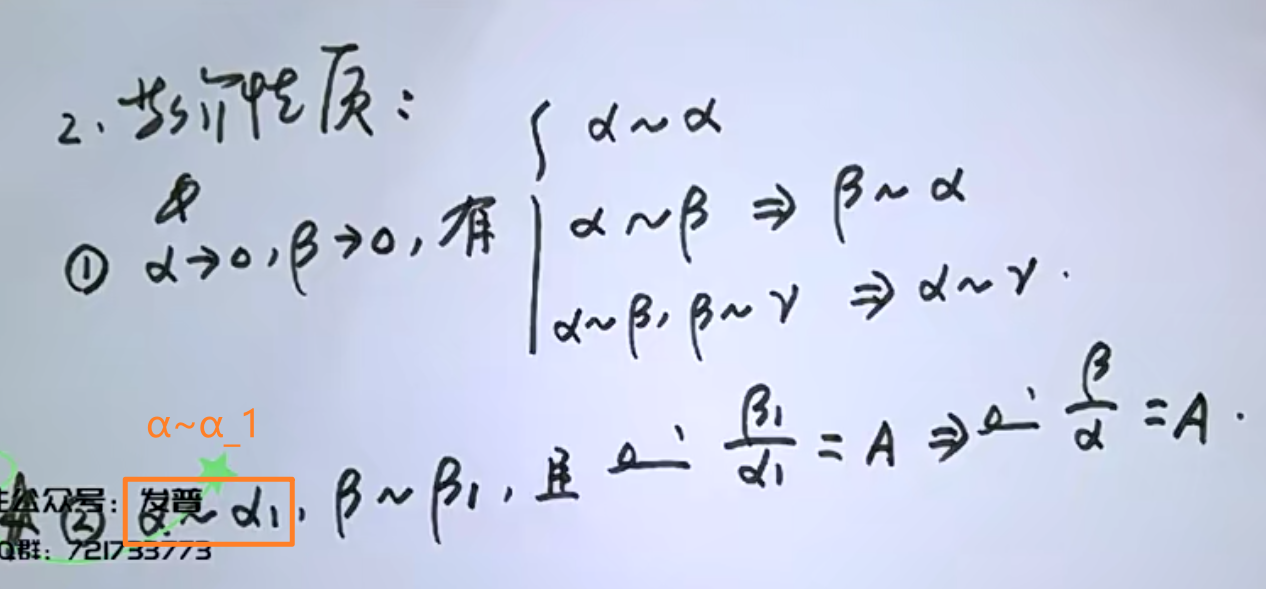 2. 等价性质:
① α→0, β→0, 有 { α~α
α~β ⇒ β~α
α~β, β~γ ⇒ α~γ.
α~α_1
② α~α₁, β~β₁, 且 lim β₁/α₁ = A ⇒ lim β/α = A.
众号: 发普
Q群: 721733773